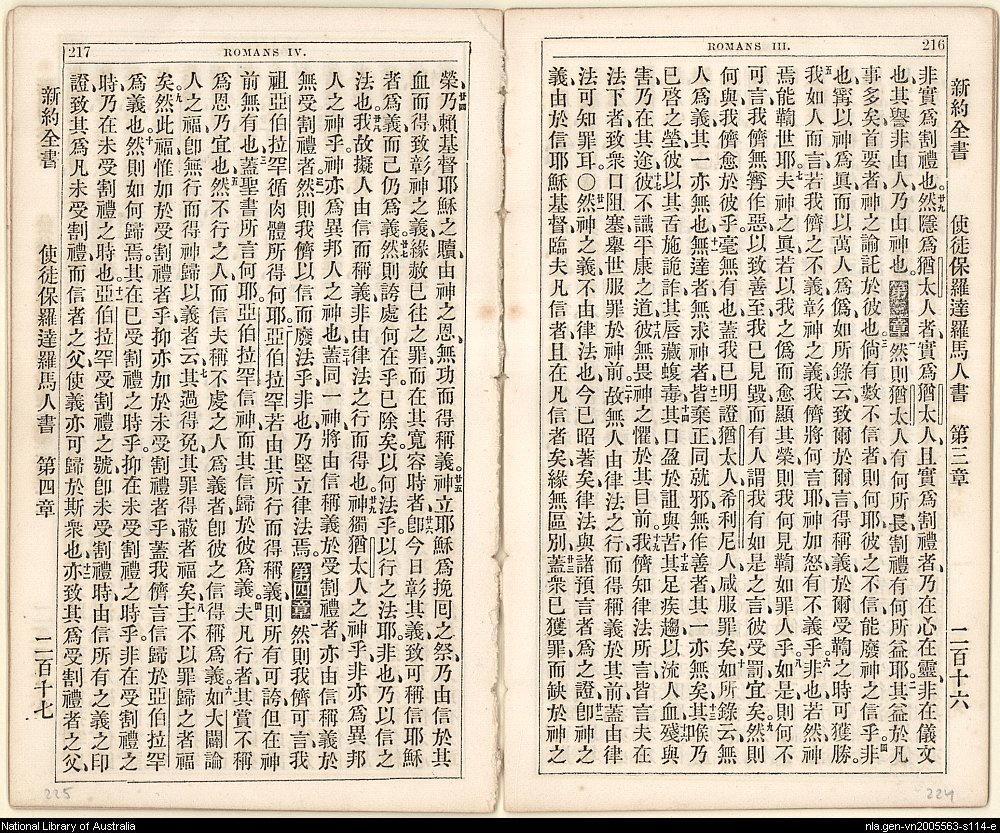 216
ROMANS III.
新約全書 使徒保羅達羅馬人書 第三章 二百十六
非實爲割禮也、然隱爲猶太人者、實爲猶太人、且實爲割禮者、乃在心在靈、非在儀文
也、其譽非由人、乃由神也。第三章 然則猶太人有何所長、割禮有何所益耶。其益於凡
事多矣、首要者、神之諭託於彼也。倘有數不信者則何耶、彼之不信、能廢神之信乎。非
也、甯以神爲眞、而以萬人爲僞、如所錄云、致爾於爾言得稱義、於爾受鞫之時可獲勝。
我如人而言、若我儕之不義、彰神之義、我儕將何言耶、神加怒有不義乎。非也、若然、神
焉能鞫世耶。夫神之眞、若以我之僞而愈顯其榮、則我何見鞫如罪人乎。如是則何不
可言我儕無甯作惡以致善至、我已見毀而有人謂我有如是之言、彼受罰宜矣。然則
何與、我儕愈於彼乎、毫無有也、蓋我已明證猶太人希利尼人、咸服罪矣。如所錄云、無
人爲義、其一亦無也、無達者、無求神者、皆棄正同就邪、無作善者、其一亦無矣。其喉乃
已啓之塋、彼以其舌施詭詐、其唇藏蝮毒、其口盈於詛與苦、其足疾趨以流人血、殘與
害乃在其途、彼不識平康之道、彼無畏神之懼於其目前。我儕知律法所言、皆言夫在
法下者、致衆口阻塞、舉世服罪於神前。故無人由律法之行而得稱義於其前、蓋由律
法可知罪耳。○然神之義、不由律法也、今已昭著矣、律法與諸預言者爲之證、卽神之
義、由於信耶穌基督、臨夫凡信者、且在凡信者矣、緣無區別、蓋衆已獲罪、而缺於神之
224
217
ROMANS IV.
榮、乃賴基督耶穌之贖、由神之恩、無功而得稱義。神立耶穌爲挽囘之祭、乃由信於其
血而得、致彰神之義、緣赦已往之罪、而在其寬容時者、卽今日彰其義、致可稱信耶穌
者爲義、而己仍爲義。然則誇處何在乎。已除矣。以何法乎。以行之法耶。非也、乃以信之
法也。我故擬人由信而稱義、非由律法之行而得也。神獨猶太人之神乎、非亦爲異邦
人之神乎。神亦爲異邦人之神也、蓋同一神、將由信稱義於受割禮者、亦由信稱義於
無受割禮者。然則我儕以信而廢法乎、非也、乃堅立律法焉。第四章 然則我儕可言我
祖亞伯拉罕循肉體所得何耶。亞伯拉罕若由其所行而得稱義、則所有可誇、但在神
前無有也。蓋聖書所言何耶、亞伯拉罕信神、而其信歸於彼爲義。夫凡行者、其賞不稱
爲恩、乃宜也。然不行之人、而信夫稱不虔之人爲義者、卽彼之信得稱爲義。如大闢論
人之福、卽無行而得神歸以義者、云、其過得免、其罪得蔽者福矣、主不以罪歸之者福
矣。然此福惟加於受割禮者乎、抑亦加於未受割禮者乎、蓋我儕言信歸於亞伯拉罕
爲義也。然則如何歸焉、其在已受割禮之時乎、抑在未受割禮之時乎。非在受割禮之
時、乃在未受割禮之時也。亞伯拉罕受割禮之號、卽未受割禮時、由信所有之義之印
證、致其爲凡未受割禮、而信者之父、使義亦可歸於斯衆也、亦致其爲受割禮者之父、
新約全書 使徒保羅達羅馬人書 第四章 二百十七
225
National Library of Australia
nla.gen-vn2005563-s114-e